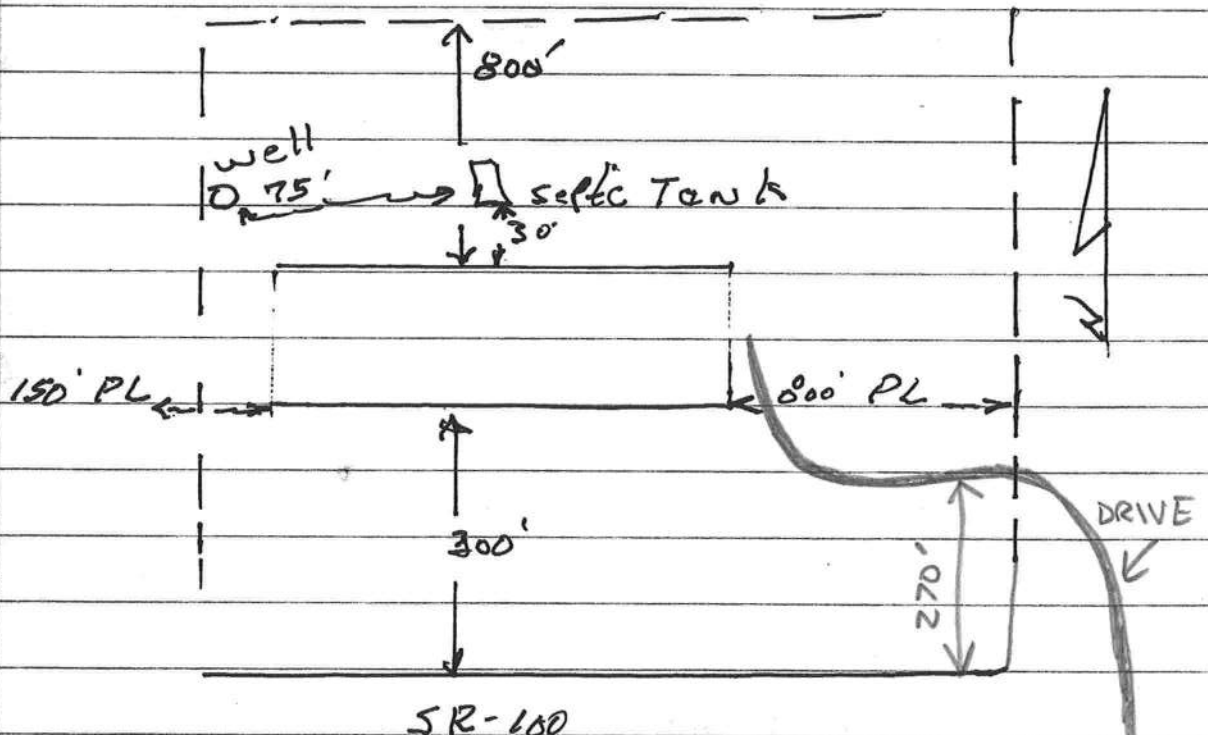 800'
well
75'
Septic Tank
30'
150' PL
800' PL
300'
DRIVE
270'
SR-100